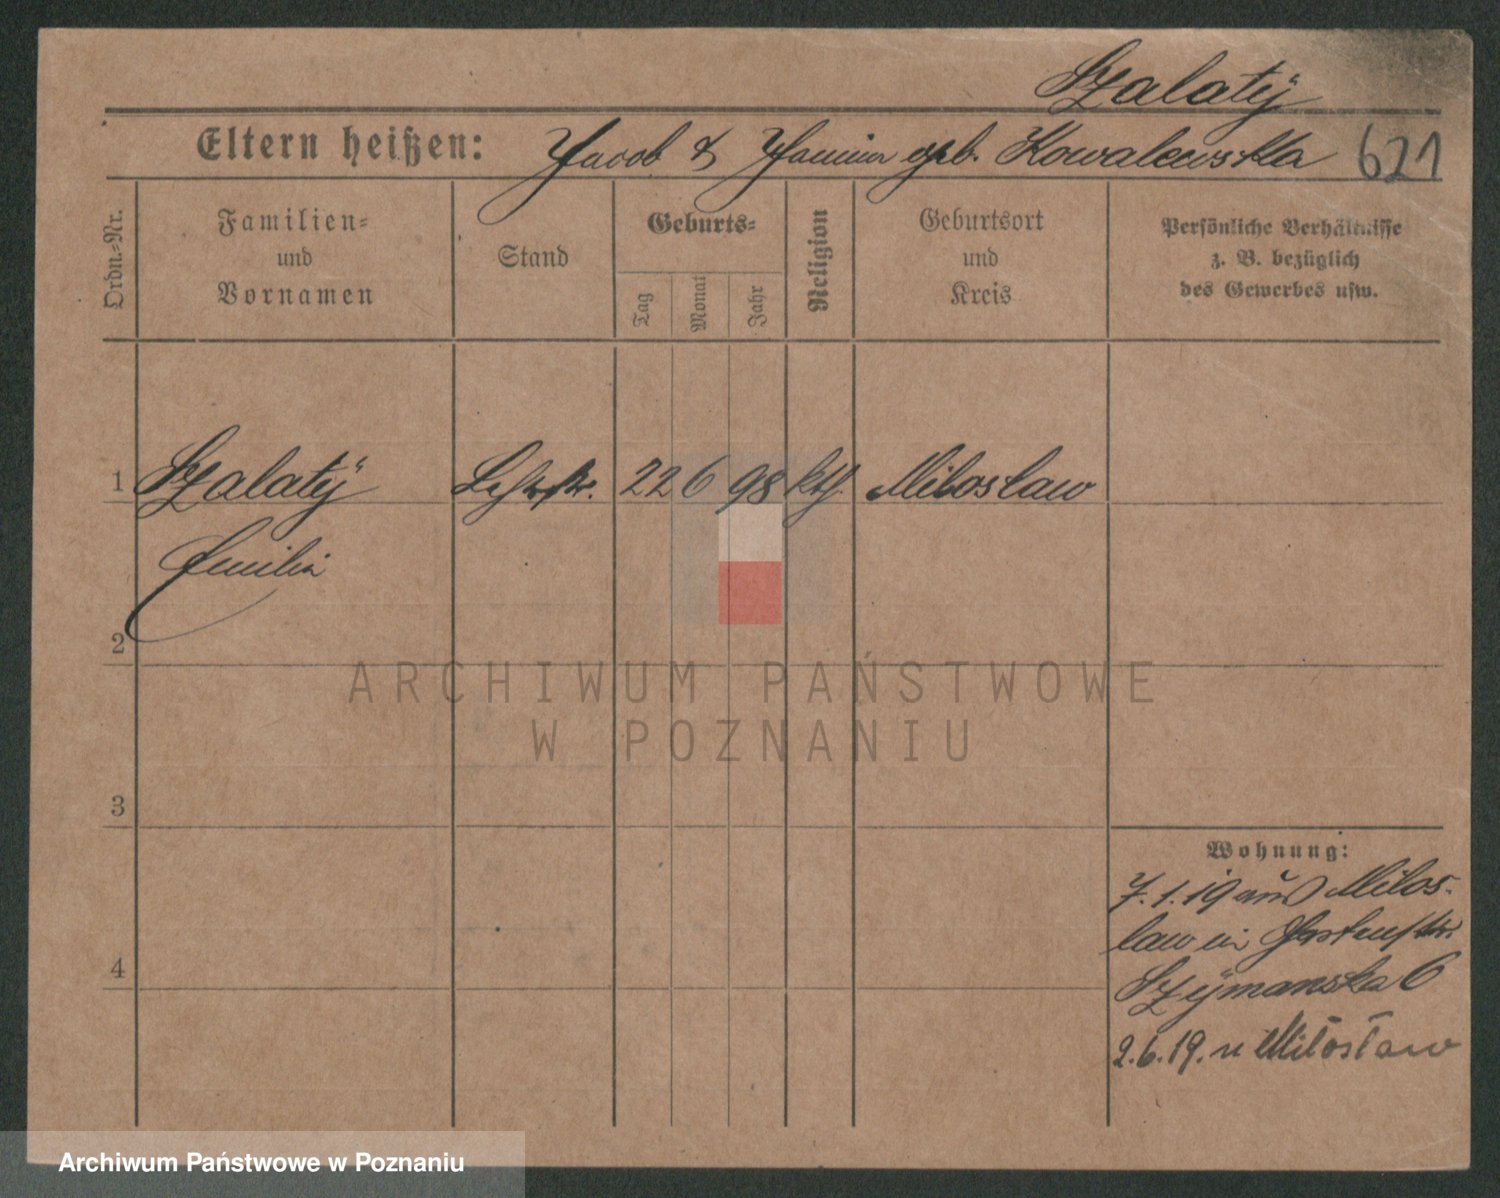 Szalatÿ
Eltern heißen: Jacob & geb. Kowalewska 621
Ordn.=Nr.
Familien=
und
Vornamen
Stand
Geburts=
Tag
Monat
Jahr
Religion
Geburtsort
und
Kreis
Persönliche Verhältnisse
z. B. bezüglich
des Gewerbes usw.
1 Szalatÿ 22 6 98 kth. Miloslaw
Emilia
2
3
4
Wohnung:
7.1.19 aus Milos-
law in
Szÿmanska 6
2.6.19. n Miłosław
ARCHIWUM PAŃSTWOWE
W POZNANIU
Archiwum Państwowe w Poznaniu